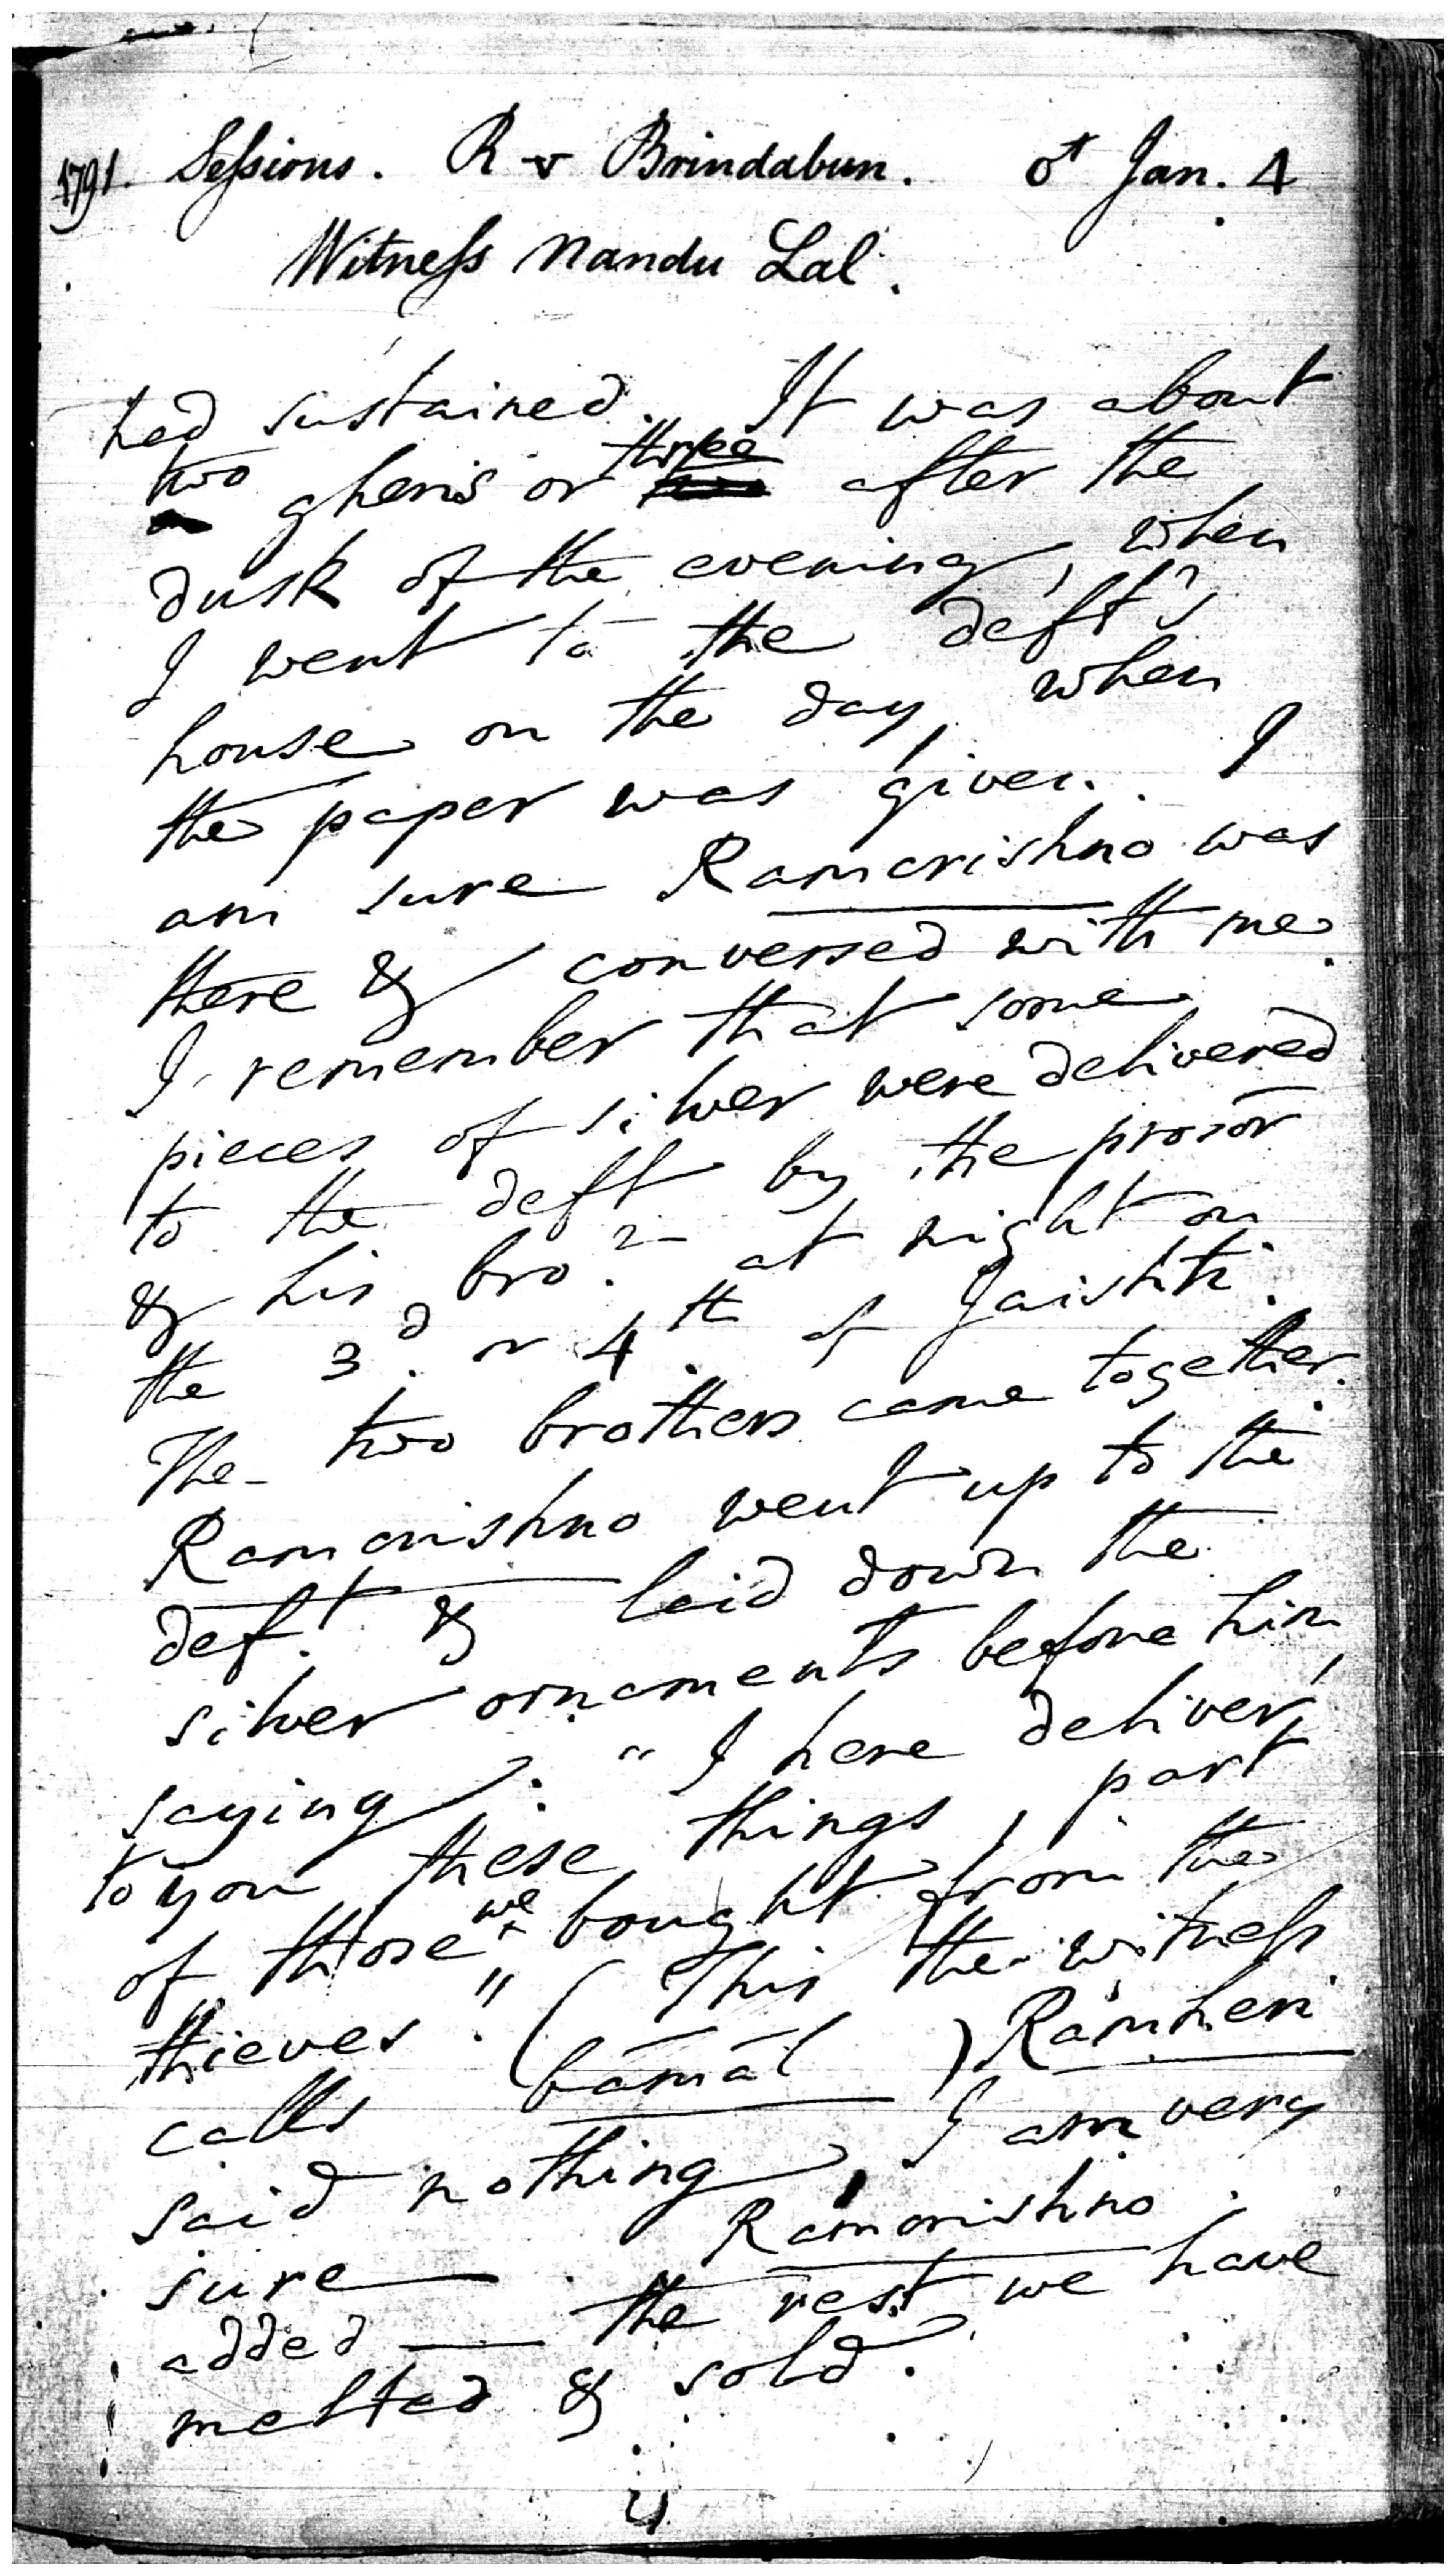 1791. Sessions. R v Brindabun. ♂ Jan. 4
Witness Nandu Lal.
had sustained. It was about
two gheris or three after the
dusk of the evening, when
I went to the deft's
house on the day, when
the paper was given. I
am sure Ramcrishno was
there & conversed with me.
I remember that some
pieces of silver were delivered
to the deft by the prosor
& his bror at night on
the 3d. or 4th. of Jaishth.
The two brothers came together.
Ramcrishno went up to the
deft. & laid down the
silver ornaments before him,
saying: "I here deliver
to you these things, part
of those we bought from the
thieves." (This the witness
calls bāmāl) Ramheri
said nothing, I am very
sure. Ramcrishno
added — the rest we have
melted & sold.